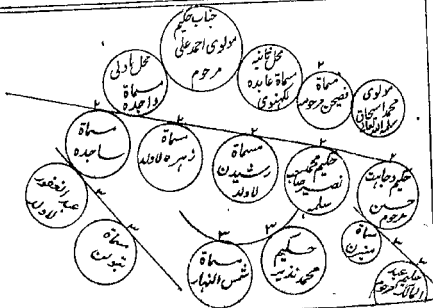 جناب حکیم
مولوی احمد علی
مرحوم
محل اولیٰ
مسماة
واجدہ
محل ثانیہ
مسماة عابدہ
لکھنوی
۲
مسماة
فصیحن مرحوم
مولوی
محمد اسحاق
سلمہ اللہ تعالیٰ
۲
مسماة
ساجدہ
۲
مسماة
زہرہ لاولد
۲
مسماة
رشیدن
لاولد
۲
حکیم محمد
نصیر صاحب
سلمہ
۲
حکیم وجاہت
حسین
مرحوم
۳
عبد الغفور
لاولد
۳
مسماة
بتون
۳
مسماة
شمس النہار
۳
حکیم
محمد نذیر
۳
مسماة
۳
حکیم عبد